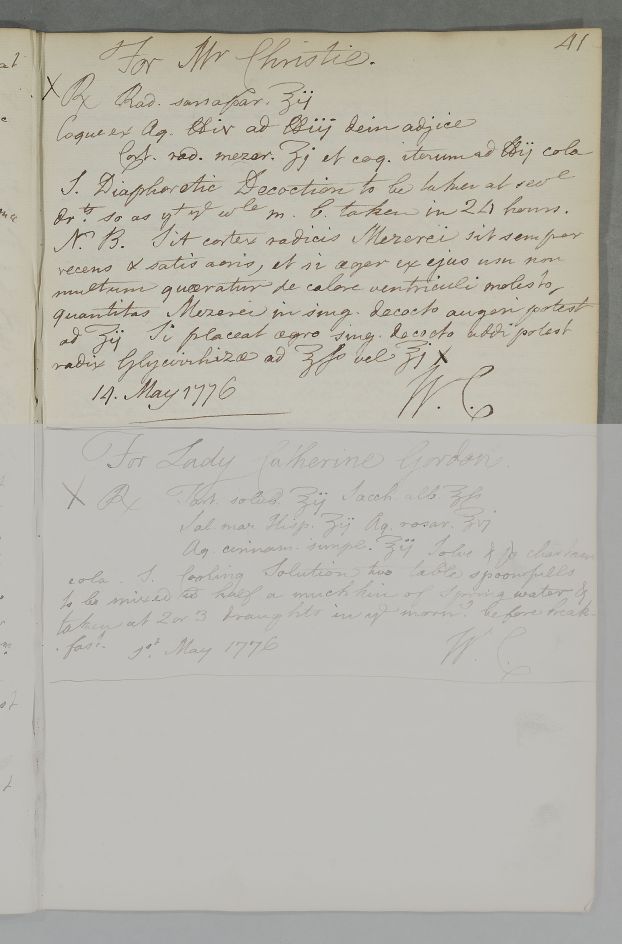 41
For Mr Christie.
x ℞ Rad. sarsapar. ℥ij
Coque ex Aq. ℔iv ad ℔iij dein adjice
Cort. rad. mezer. ʒj et coq. iterum ad ℔ij cola
S. Diaphoretic Decoction to be taken at sevˡᵉ
drᵗˢ so as yᵗ yᵉ wˡᵉ m. b. taken in 24 hours.
N. B. Sit cortex radicis Mezerei sit semper
recens & satis acris, et si æger ex ejus usu non
multum quæratur de calore ventriculi molesto,
quantitas Mezerei in sing. decocto augeri potest
ad ʒij Si placeat ægro sing. decocto addi potest
radix Glycirrhizæ ad ℥ſs vel ℥j x
14. May 1776
W. C.
For Lady Catherine Gordon.
x ℞ Tart. solub. ℥ij Sacch. alb. ℥ſs
Sal. mar. Hisp. ʒij Aq. rosar. ℥vj
Aq. cinnam. simpl. ℥ij Solve &
cola. S. Cooling Solution two table spoonfulls
to be mixed wᵗ half a mutchkin of Spring water &
taken at 2 or 3 draughts in yᵉ mornᵍ before break-
fast. 1sᵗ May 1776
W. C.